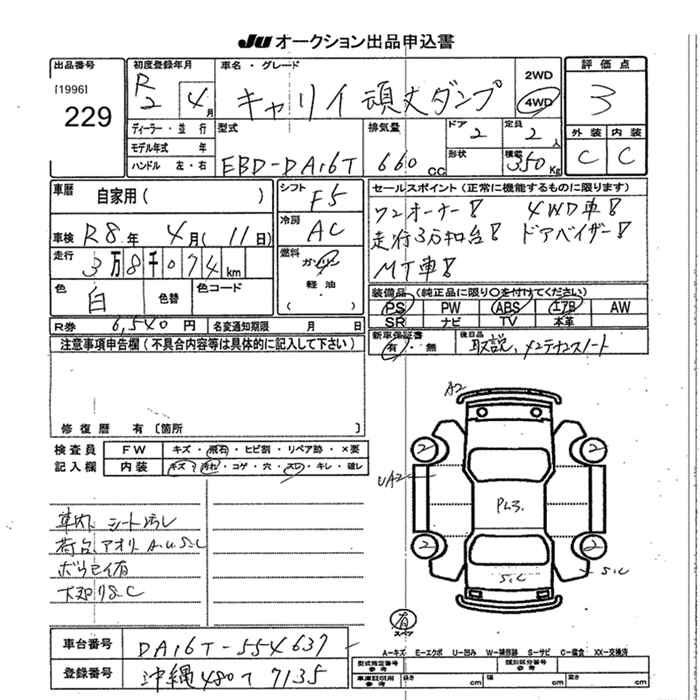 JU オークション出品申込書
出品番号 初度登録年月 車名・グレード 評価点
[1996]
229
R2 4月 キャリイ 頑丈ダンプ 2WD 4WD 3
ディーラー・並行 型式 排気量 ドア 2 定員 2人 外装 内装
モデル年式 年
ハンドル 左・右 EBD-DA16T 660cc 形状 積載 350Kg C C
車暦 自家用( ) シフト F5 セールスポイント(正常に機能するものに限ります)
車検 R8年 4月(11日) 冷房 AC ワンオーナー! 4WD車!
走行 3万8千074km 燃料 ガソリン 走行3万km台! ドアバイザー!
軽油 MT車!
( )
色 白 色替 色コード 装備品(純正品に限り○を付けてください)
PS PW ABS エアB AW
R券 6,540円 名変通知期限 月 日 SR ナビ TV 本革
注意事項申告欄(不具合内容等は具体的に記入して下さい) 新車保証書 有・無 後日品 取説、メンテナンスノート
修復歴 有 [箇所 ]
検査員 FW キズ・飛石・ヒビ割・リペア跡・×要
記入欄 内装 キズ・汚れ・コゲ・穴・スレ・キレ・破レ
A2
2 2
UA2
PL3.
2 2
S.C S.C
車内 シート汚レ
荷台、アオリ A.U.S.C
下廻りS.C
有
スペア
A=キズ E=エクボ U=凹み W=補修跡 S=サビ C=腐食 XX=交換済
車台番号 DA16T-554637 型式指定番号 参考 類別区分番号 参考
登録番号 沖縄 480 7135 車庫証明用 参考 長さ cm 幅 cm 高さ cm